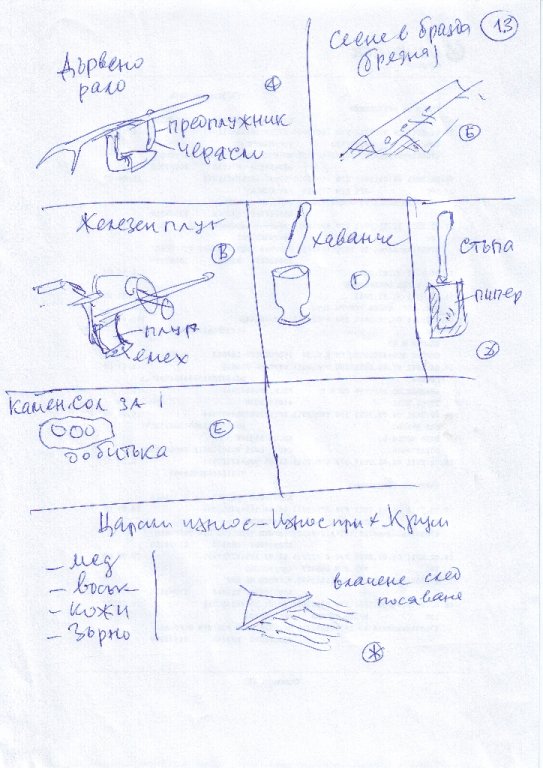 13
Дървено
рало
А
преоплужник
черясло
Сеене в бразда
(бразда)
Б
Железен плуг
В
плуг
емех
хаванче
Г
стъпа
пипер
Д
Камен. сол за
добитъка
Е
износ – Износ при х. Крум
– мед
– восък
– кожи
– Зърно
влачене след
посяване
Ж